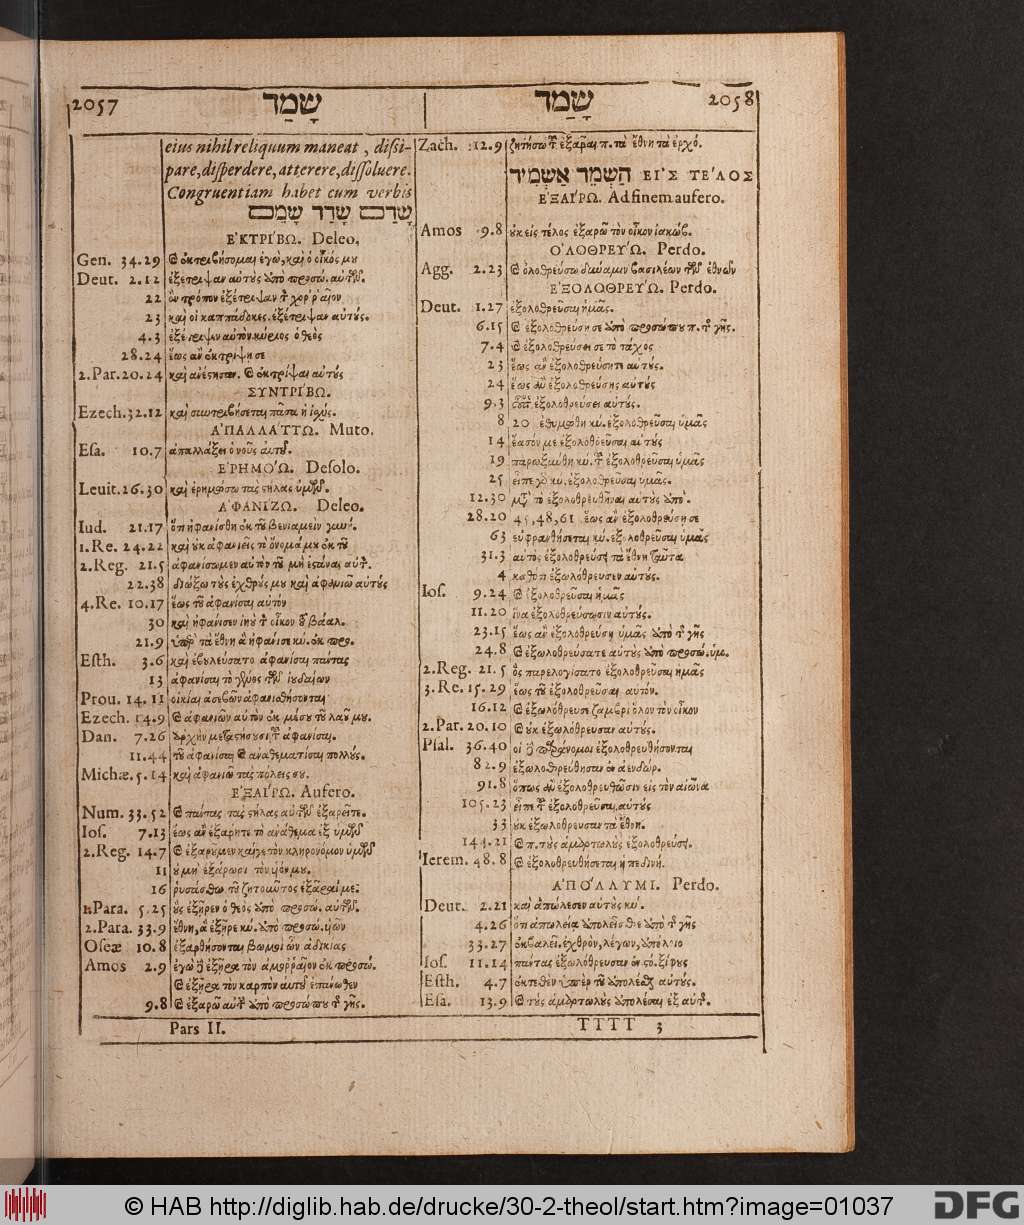 2057 שָׁמַד
eius nihil reliquum maneat, dissi-
pare, disperdere, atterere, dissoluere.
Congruentiam habet cum verbis
ἘΚΤΡΊΒΩ. Deleo.
Gen. 34.29 ἐκτριβήσομαι ἐγὼ, καὶ ὁ οἶκός μου
Deut. 2.12 ἐξέτριψαν αὐτοὺς ὑπὸ προσώ. αὐτῶν.
22 ὃν τρόπον ἐξέτριψαν τ χορραῖον
23 καὶ οἱ καππάδοκες, ἐξέτριψαν αὐτούς.
4.3 ἐξέτριψεν αὐτὸν κύριος ὁ θεὸς
28.24 ἕως ἂν ἐκτρίψῃ σε
2.Par. 20.24 καὶ ἀνέστησαν. ἐκτρίψαι αὐτούς
ΣΥΝΤΡΊΒΩ.
Ezech. 32.12 καὶ συντριβήσεται πᾶσα ἡ ἰσχύς.
ἈΠΑΛΛΆΤΤΩ. Muto.
Esa. 10.7 ἀπαλλάξει ὁ νοῦς αὐτοῦ.
ἘΡΗΜΌΩ. Desolo.
Leuit. 26.30 καὶ ἐρημώσω τὰς στήλας ὑμῶν.
ἈΦΑΝΊΖΩ. Deleo.
Iud. 21.17 ὅτι ἠφανίσθη ἐκ τοῦ βενιαμεὶν γυνή.
1.Re. 24.22 καὶ οὐκ ἀφανιεῖς τὸ ὄνομά μου ἐκ τοῦ
2.Reg. 21.5 ἀφανίσωμεν αὐτὸν τοῦ μὴ ἑστάναι αὐτ.
22.38 διώξω τοὺς ἐχθρούς μου καὶ ἀφανιῶ αὐτούς
4.Re. 10.17 ἕως τοῦ ἀφανίσαι αὐτὸν
30 καὶ ἠφάνισεν ἰηοὺ τ οἶκον τοῦ βάαλ.
21.9 ὑπὲρ τὰ ἔθνη ἃ ἠφάνισε κύ. ἐκ προσ.
Esth. 3.6 καὶ ἐβουλεύσατο ἀφανίσαι πάντας
13 ἀφανίσαι τὸ γένος τῶν ἰουδαίων
Prou. 14.11 οἰκίαι ἀσεβῶν ἀφανισθήσονται
Ezech. 14.9 ἀφανιῶ αὐτὸν ἐκ μέσου τοῦ λαοῦ μου.
Dan. 7.26 ἀρχὴν μεταστήσουσι τ ἀφανίσαι.
11.44 τοῦ ἀφανίσαι ἀναθεματίσαι πολλούς.
Michæ. 5.14 καὶ ἀφανιῶ τὰς πόλεις σου.
ἘΞΑΊΡΩ. Aufero.
Num. 33.52 πάντας τὰς στήλας αὐτῶν ἐξαρεῖτε.
Ios. 7.13 ἕως ἂν ἐξάρητε τὸ ἀνάθεμα ἐξ ὑμῶν
2.Reg. 14.7 ἐξαροῦμεν καίγε τὸν κληρονόμον ὑμῶν
11 οὐ μὴ ἐξάρωσι τὸν υἱόν μου.
16 ῥυσάσθω τοῦ ζητοῦντος ἐξᾶραί με.
1.Para. 5.25 οὓς ἐξῆρεν ὁ θεὸς ὑπὸ προσώ. αὐτῶν.
2.Para. 33.9 ἔθνη, ἃ ἐξῆρε κύ. ὑπὸ προσώ. υἱῶν
Oseæ 10.8 ἐξαρθήσονται βωμοὶ ὢν ἀδικίας
Amos 2.9 ἐγὼ ἐξῆρα τὸν ἀμορραῖον ἐκ προσώ.
ἐξῆρα τὸν καρπὸν αὐτοῦ ἐπάνωθεν
9.8 ἐξαρῶ αὐτ ὑπὸ προσώπου τ γῆς.
Pars II.
שָׁמַד 2058
Zach. 12.9 ζητήσω τ ἐξᾶραι π. τὰ ἔθνη τὰ ἐρχό.
הַשְׁמֵד אַשְׁמִיד ΕἸΣ ΤΈΛΟΣ
ἘΞΑΊΡΩ. Ad finem aufero.
Amos 9.8 οὐκ εἰς τέλος ἐξαρῶ τὸν οἶκον ἰακώβ.
ὈΛΟΘΡΕΎΩ. Perdo.
Agg. 2.23 ὀλοθρεύσω δύναμιν βασιλέων τῶν ἐθνῶν
ἘΞΟΛΟΘΡΕΎΩ. Perdo.
Deut. 1.27 ἐξολοθρεῦσαι ἡμᾶς.
6.15 ἐξολοθρεύσῃ σε ὑπὸ προσώπου π. τ γῆς.
7.4 ἐξολοθρεύσει σε τὸ τάχος
23 ἕως ἂν ἐξολοθρεύσητε αὐτούς.
24 ἕως ἂν ἐξολοθρεύσῃς αὐτούς
9.3 ἐξολοθρεύσει αὐτούς.
8 20 ἐθυμώθη κύ. ἐξολοθρεῦσαι ὑμᾶς
14 ἔασόν με ἐξολοθρεῦσαι αὐτούς
19 παρωξύνθη κύ. τ ἐξολοθρεῦσαι ὑμᾶς
25 εἶπε κύ. ἐξολοθρεῦσαι ὑμᾶς.
12.30 μετὰ τὸ ἐξολοθρευθῆναι αὐτοὺς ἀπό.
28.20 45, 48, 61 ἕως ἂν ἐξολοθρεύσῃ σε
63 εὐφρανθήσεται κύ. ἐξολοθρεῦσαι ὑμᾶς
31.3 αὐτὸς ἐξολοθρεύσει τὰ ἔθνη ταῦτα
4 καθότι ἐξωλόθρευσεν αὐτούς.
Ios. 9.24 ἐξολοθρεῦσαι ἡμᾶς
11.20 ἵνα ἐξολοθρεύσωσιν αὐτούς.
23.15 ἕως ἂν ἐξολοθρεύσῃ ὑμᾶς ἀπὸ τ γῆς
24.8 ἐξωλοθρεύσατε αὐτοὺς ἀπὸ προσώ. ὑμ.
2.Reg. 21.5 ὃς παρελογίσατο ἐξολοθρεῦσαι ἡμᾶς
3.Re. 15.29 ἕως τοῦ ἐξολοθρεῦσαι αὐτόν.
16.12 ἐξωλόθρευσε ζαμβρὶ ὅλον τὸν οἶκον
2.Par. 20.10 οὐκ ἐξωλόθρευσαν αὐτούς.
Psal. 36.40 οἱ παράνομοι ἐξολοθρευθήσονται
82.9 ἐξωλοθρεύθησαν ἐν ἀενδώρ.
91.8 ὅπως ἂν ἐξολοθρευθῶσιν εἰς τὸν αἰῶνα
105.23 εἶπε τ ἐξολοθρεῦσαι αὐτούς
33 οὐκ ἐξωλόθρευσαν τὰ ἔθνη.
144.21 π. τοὺς ἁμαρτωλοὺς ἐξολοθρεύσει.
Ierem. 48.8 ἐξολοθρευθήσεται ἡ πεδινή.
ἈΠΌΛΛΥΜΙ. Perdo.
Deut. 2.21 καὶ ἀπώλεσεν αὐτοὺς κύ.
4.26 ὅτι ἀπωλείᾳ ἀπολεῖσθε ἀπὸ τ γῆς
33.27 ἐκβαλεῖ ἐχθρὸν, λέγων, ἀπόλοιο
Ios. 11.14 πάντας ἐξωλόθρευσαν ἐν στό. ξίφους
Esth. 4.7 ἀπολέσῃ αὐτούς.
Esa. 13.9 τοὺς ἁμαρτωλοὺς ἀπολέσαι ἐξ αὐτ.
TTTT 3
© HAB http://diglib.hab.de/drucke/30-2-theol/start.htm?image=01037
DFG